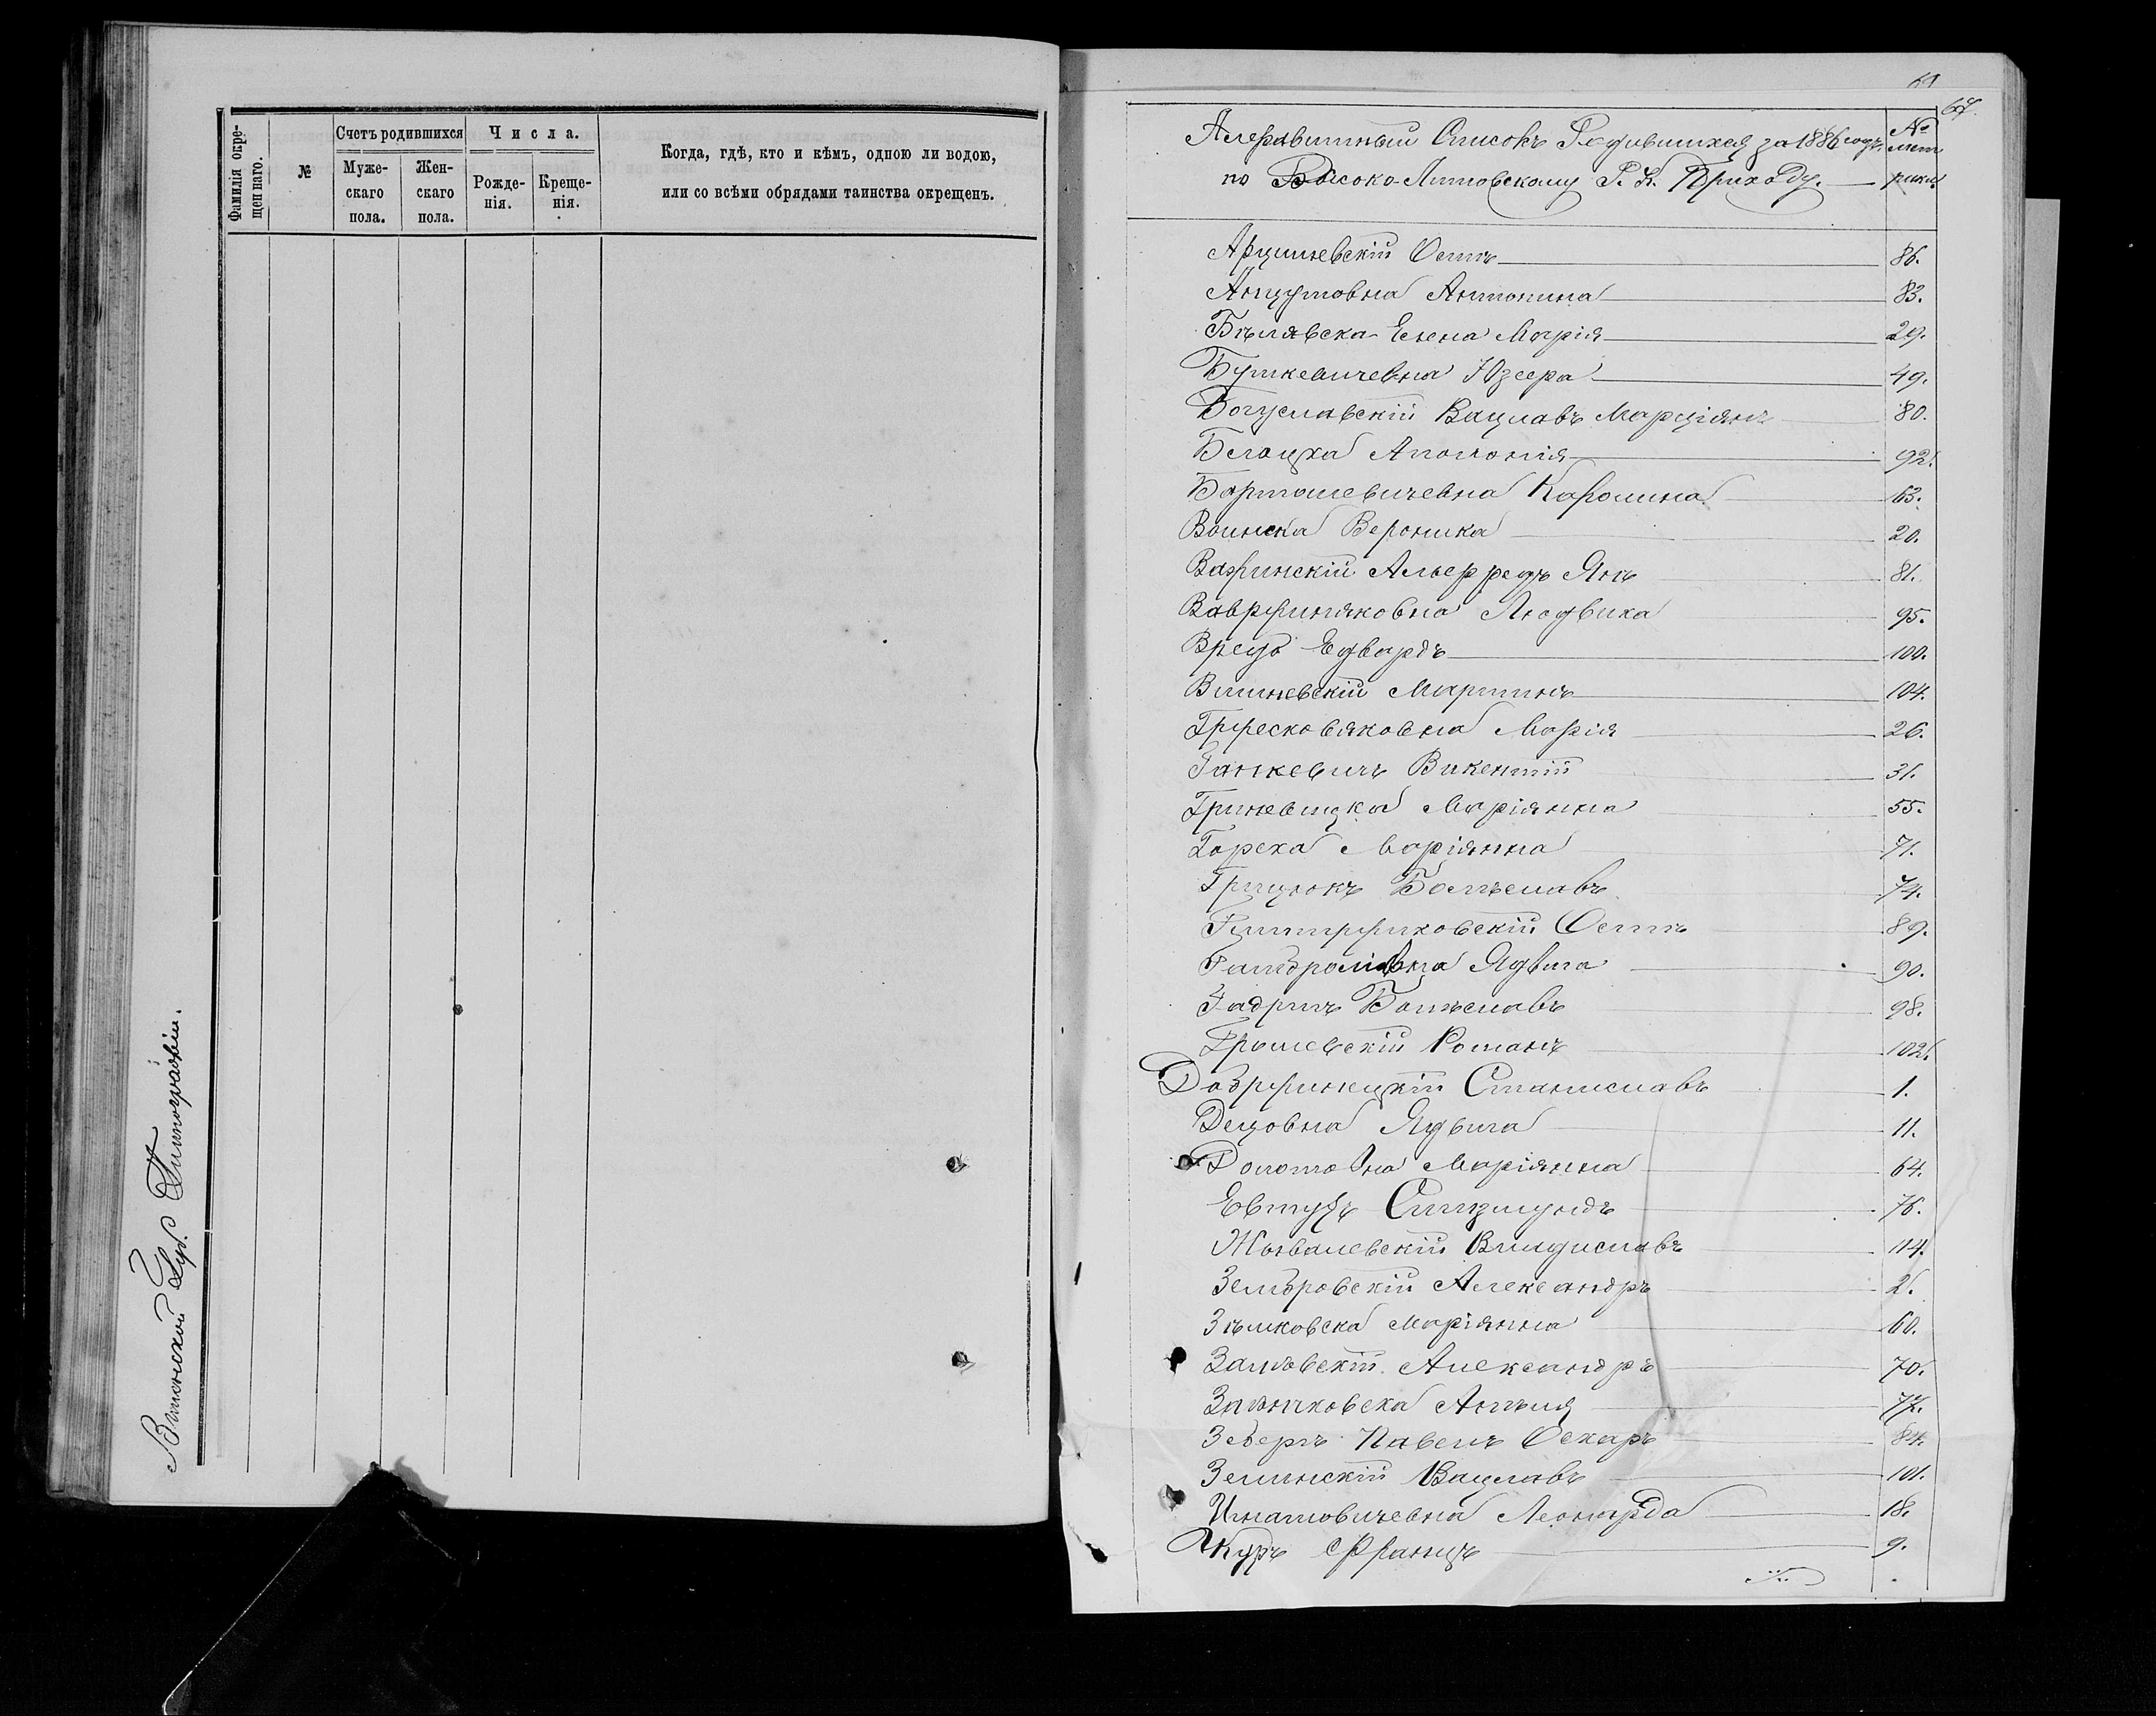 Фамилія окре-
щеннаго.
№
Счетъ родившихся
Муже-
скаго
пола.
Жен-
скаго
пола.
Числа.
Рожде-
нія.
Креще-
нія.
Когда, гдѣ, кто и кѣмъ, одною ли водою,
или со всѣми обрядами таинства окрещенъ.
Виленской Губ. Типографіи.
67.
Алфавитный Списокъ Родившихся за 1886 годъ
по Высоко-Литовскому Р. К. Приходу.
№
мет
рики
Арцишевскій Осипъ 86.
Анцутовна Антонина 83.
Бѣлявска Елена Марія 29.
Буткевичевна Юзефа 49.
Богуславскій Вацлавъ Марціянъ 80.
Белоцка Аполонія 92.
Бартошевичевна Каролина 63.
Воинска Вероника 20.
Важинскій Альфредъ Янъ 81.
Людвика 95.
Едвардъ 100.
Вишневскій Мартинъ 104.
Гржесковяковна Марія 26.
Ганкевичъ Викентій 31.
Гриневицка Маріянна 55.
Горска Маріянна 71.
Грицюкъ Болѣславъ 74.
Осипъ 89.
Ядвига 90.
Болѣславъ 98.
Романъ 102.
Добржинецкій Станиславъ 1.
Децовна Ядвига 11.
Маріянна 64.
Евтухъ Сигизмундъ 76.
Владиславъ 114.
Зембровскій Александръ 2.
Маріянна 60.
Александръ 70.
Анѣля 77.
Павелъ Оскаръ 84.
Зелинскій Вацлавъ 101.
Игнатовичевна Леонарда 18.
Францъ 9.